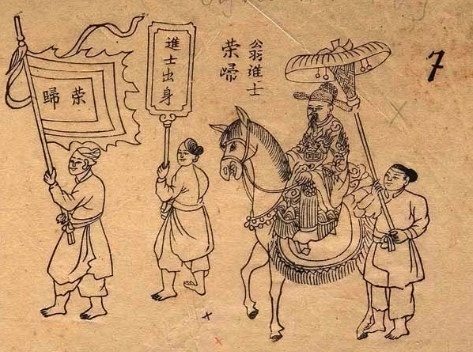 荣歸
進士出身
翁進士
荣歸
7